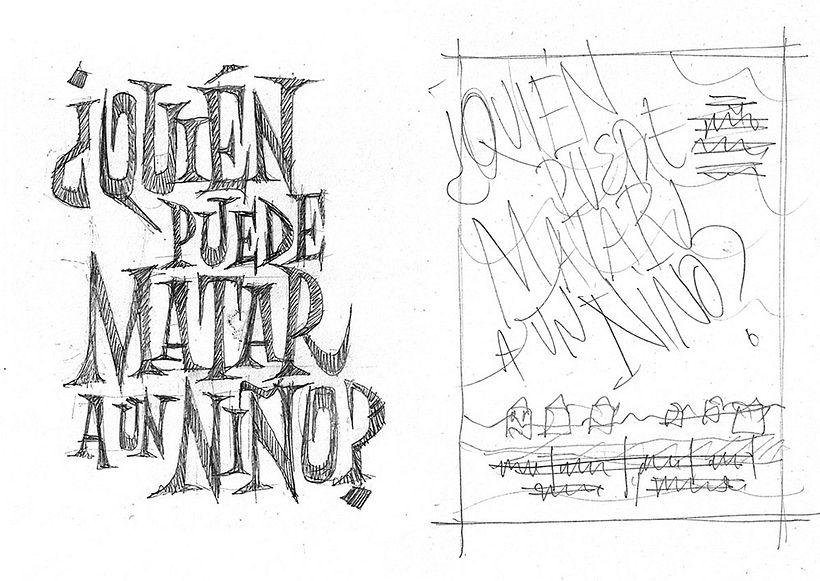 ¿QUIÉN
PUEDE
MATAR
A UN NIÑO?
¿QUIÉN
PUEDE
MATAR
A UN NIÑO?